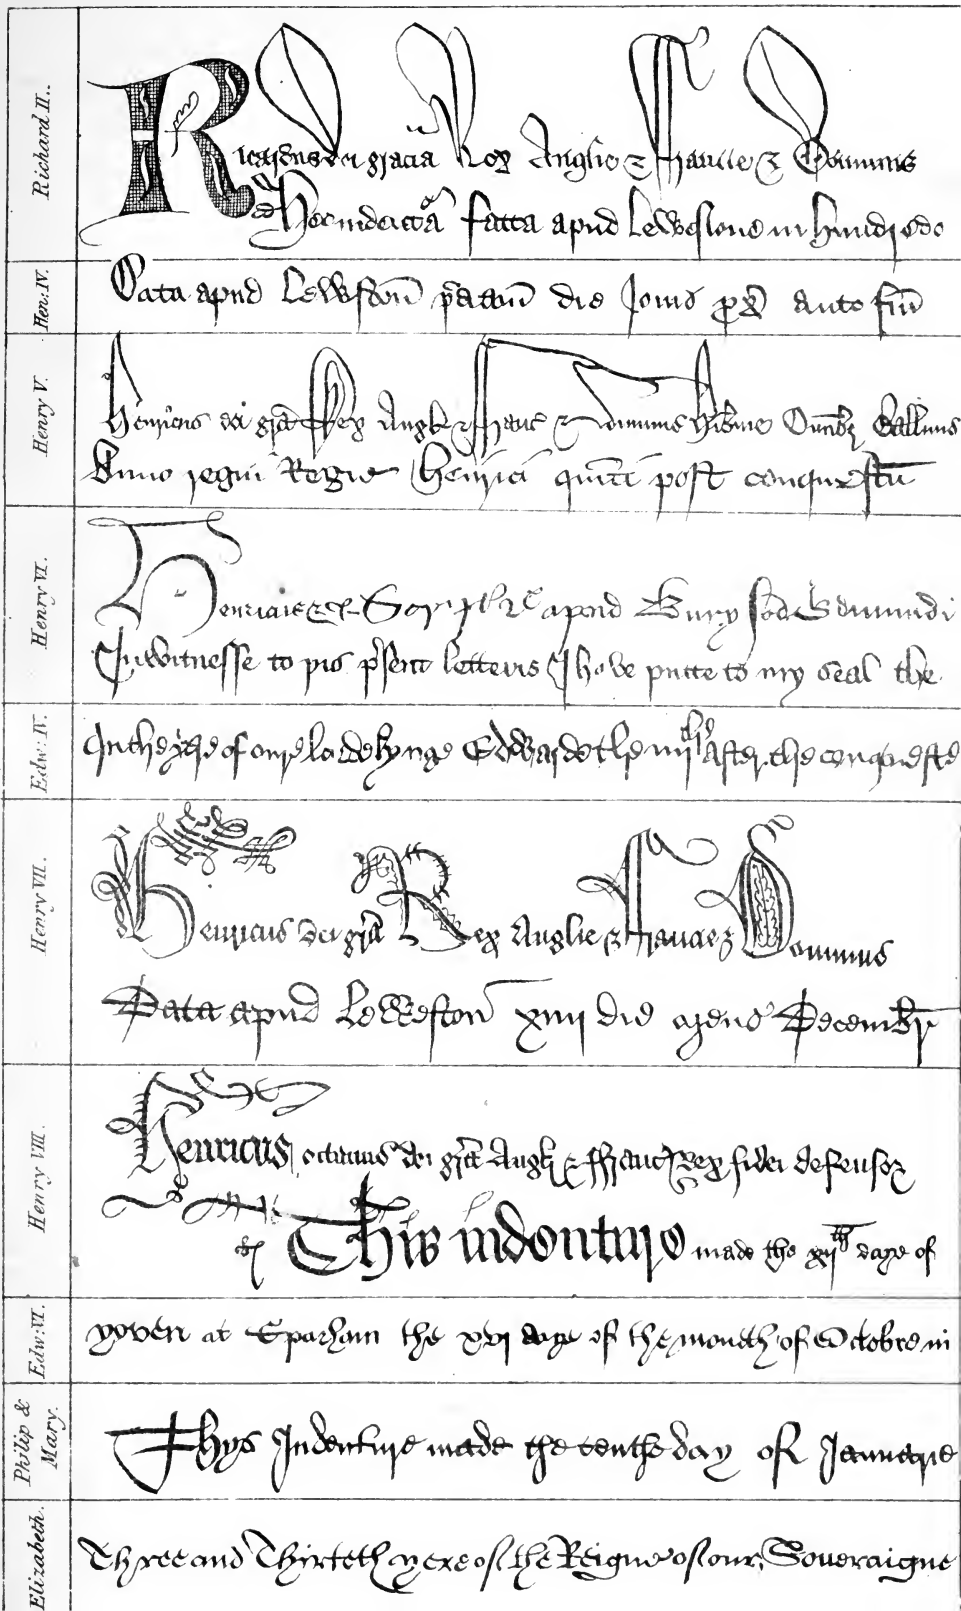 Richard II.
Ricardus dei gracia Rex Anglie & Francie & Dominus
Hec indentā facta apud Lewestone in hundredo
Hen: IV.
Data apud Lewston die Jovis pͦx ante fm̄
Henry V.
Henricus dei grā Rex Angl & Franc & Dominus Hibnie Omībz Ballivis
Anno regni Regis Henrici quinti post conquestū
Henry VI.
Henricus &c apud Bury Edmundi
In witnesse to þis p̄sent letteris I have putte to my seal the
Edw: IV.
In the yere of oure lorde kynge Edwarde the iiijth after the conqueste
Henry VII.
Henricus dei grā Rex Anglie & Francie & Dominus
Data apud Leweston xiiij die Decembr
Henry VIII.
Henricus octavus dei grā Angl & ffranc Rex fidei defensor
This indenture made the xijth daye of
Edw: VI.
yoven at Sparham the xvj daye of the month of Octobre in
Philip &
Mary.
Thys Indenture made the tenthe day of Januarie
Elizabeth.
Three and Thirteth yere of the Reigne of our Soveraigne